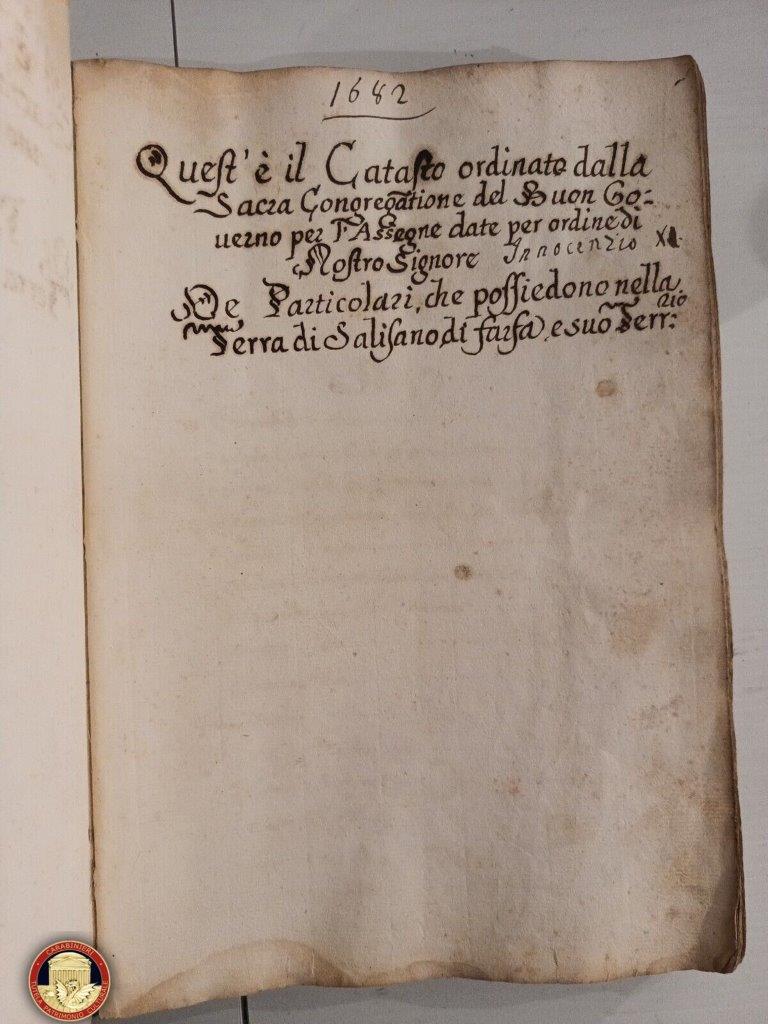 1682
Quest'è il Catasto ordinato dalla
Sacra Congregatione del Buon Go:
uerno per l'Assegne date per ordine di
Nostro Signore Innocenzio XI
De Particolari, che possiedono nella
Terra di Salisano di farfa, e suo Terr:rio
CARABINIERI
TUTELA PATRIMONIO CULTURALE